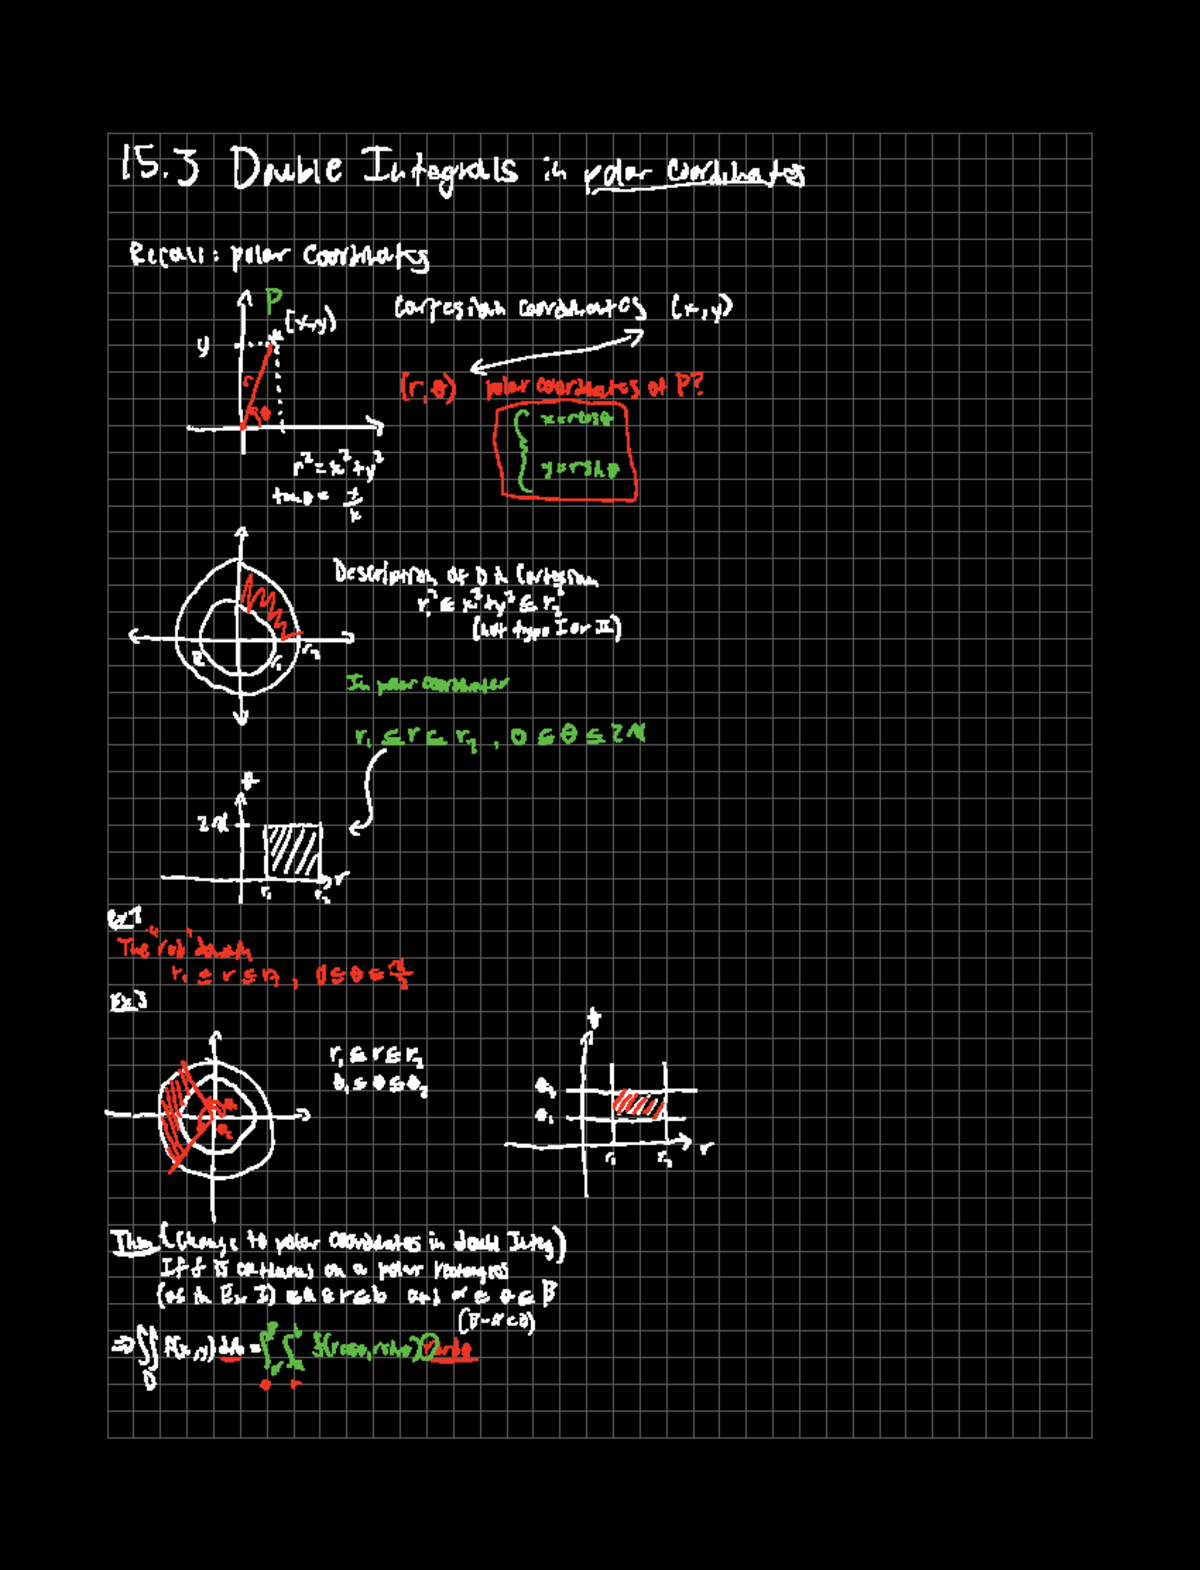 15.3 Double Integrals in polar coordinates
Recall: polar coordinates
P
(x,y)
y
r
θ
Cartesian coordinates (x,y)
(r,θ) polar coordinates of P?
x=rcosθ
y=rsinθ
r²=x²+y²
tanθ = y/x
Description of D in Cartesian
r₁² ≤ x²+y² ≤ r₂²
(not type I or II)
r₁ r₂
In polar coordinates
r₁ ≤ r ≤ r₂, 0 ≤ θ ≤ 2π
2π
r
r₁ r₂
The "red" domain
r₁ ≤ r ≤ r₂, 0 ≤ θ ≤ π/2
Ex3
r₁ ≤ r ≤ r₂
θ₁ ≤ θ ≤ θ₂
θ₂
θ₁
r₁ r₂ r
Thm (Change to polar coordinates in doubl Integ)
If f is continuous on a polar rectangles
(as in Ex 3) a ≤ r ≤ b and α ≤ θ ≤ β
⇒ ∬ f(x,y) dA = ∫ ∫ f(rcosθ, rsinθ) r dr dθ
D
θ r